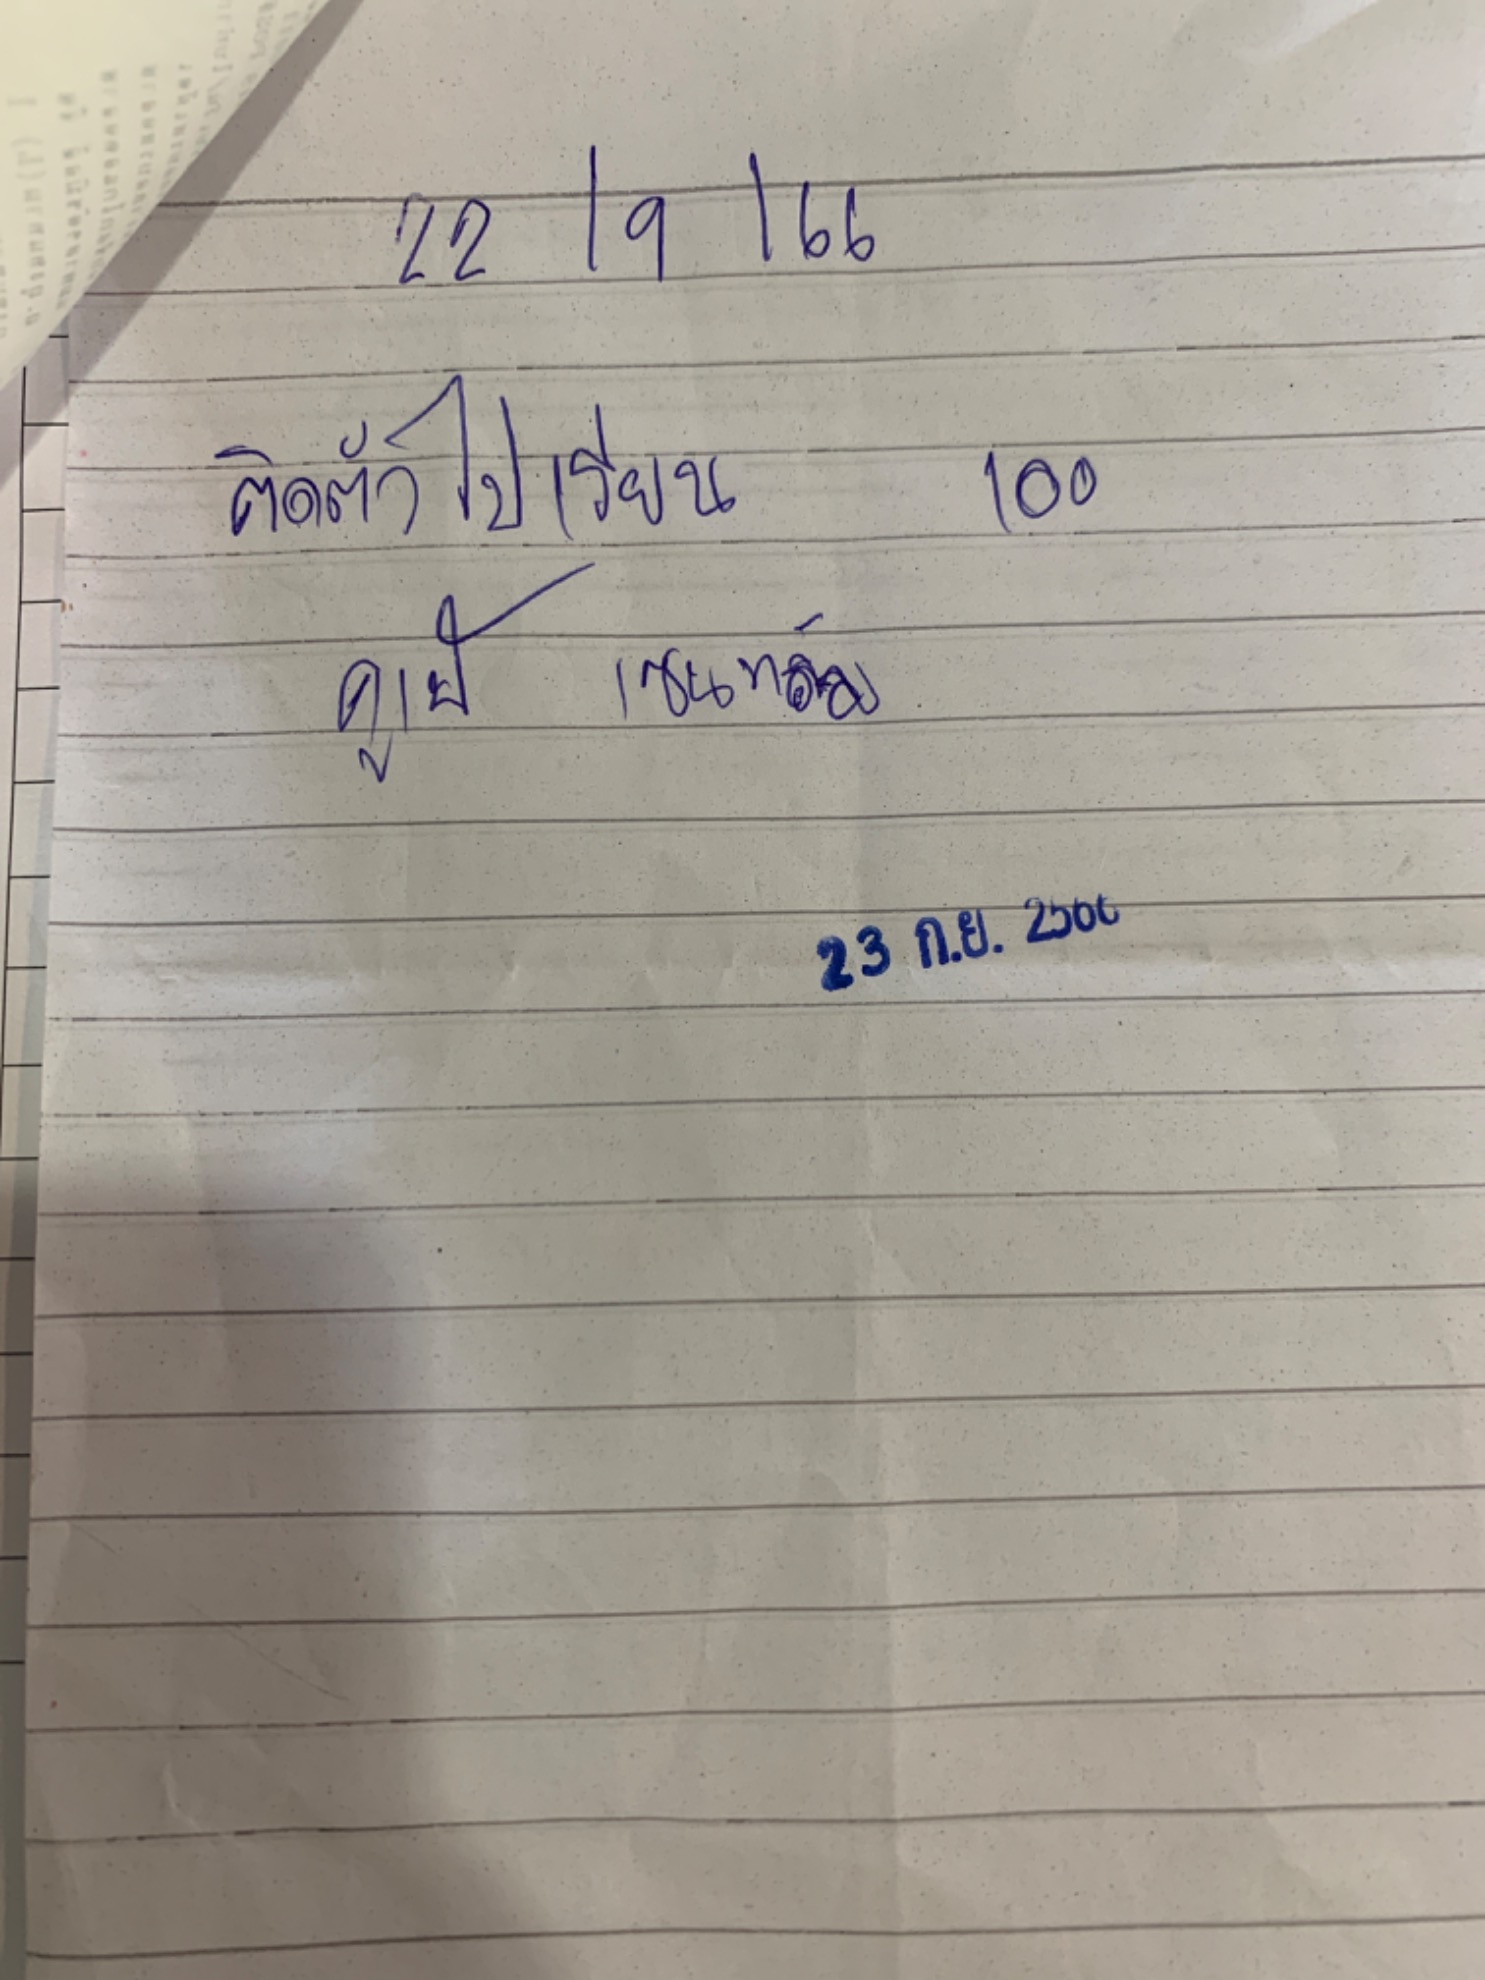 22/9/66
ติดตัวไปเรียน 100
เซนทรัล
23 ก.ย. 2566